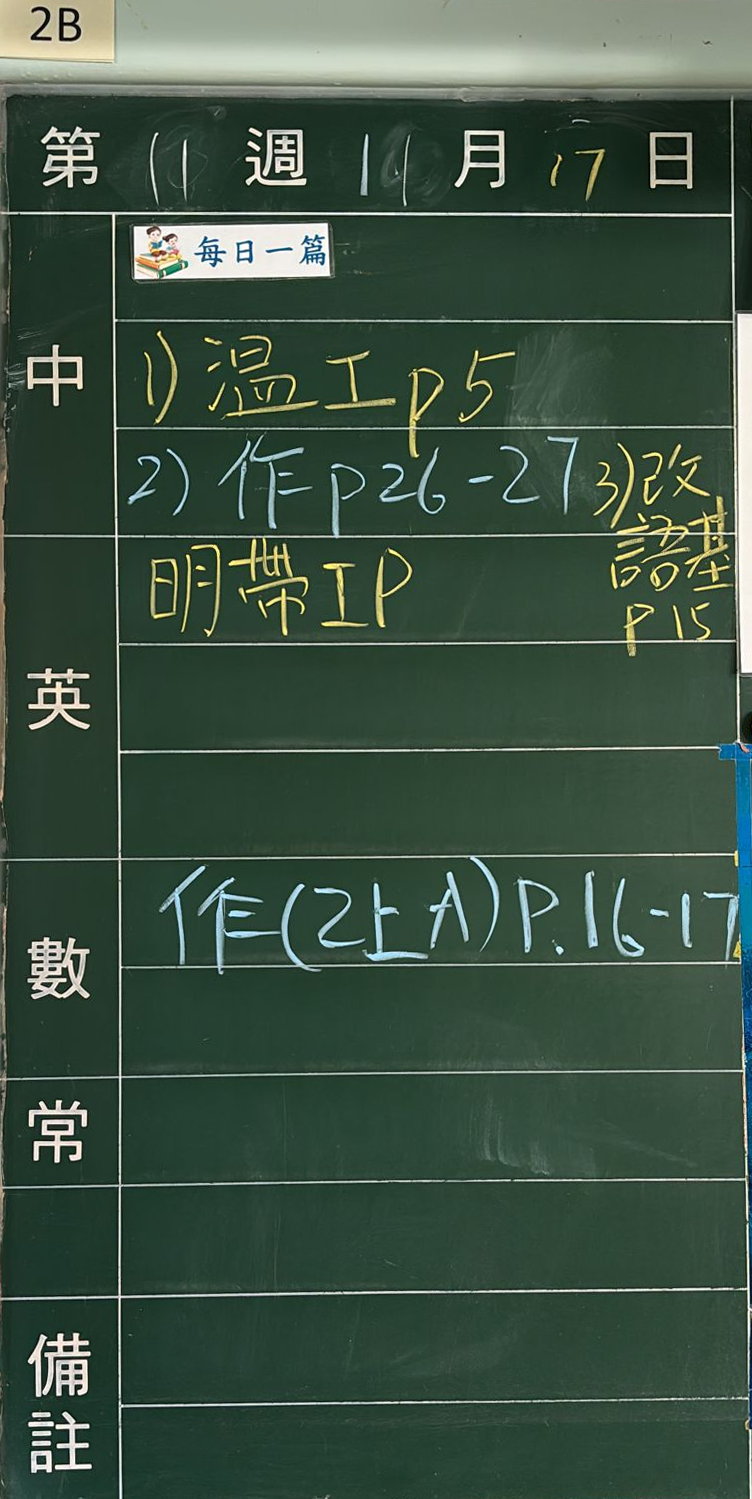 2B
第 11 週 11 月 17 日
每日一篇
中
1) 温工p5
2) 作p26-27 3)改
語基
p15
英
明帶IP
數
作(2上A)P.16-17
常
備註